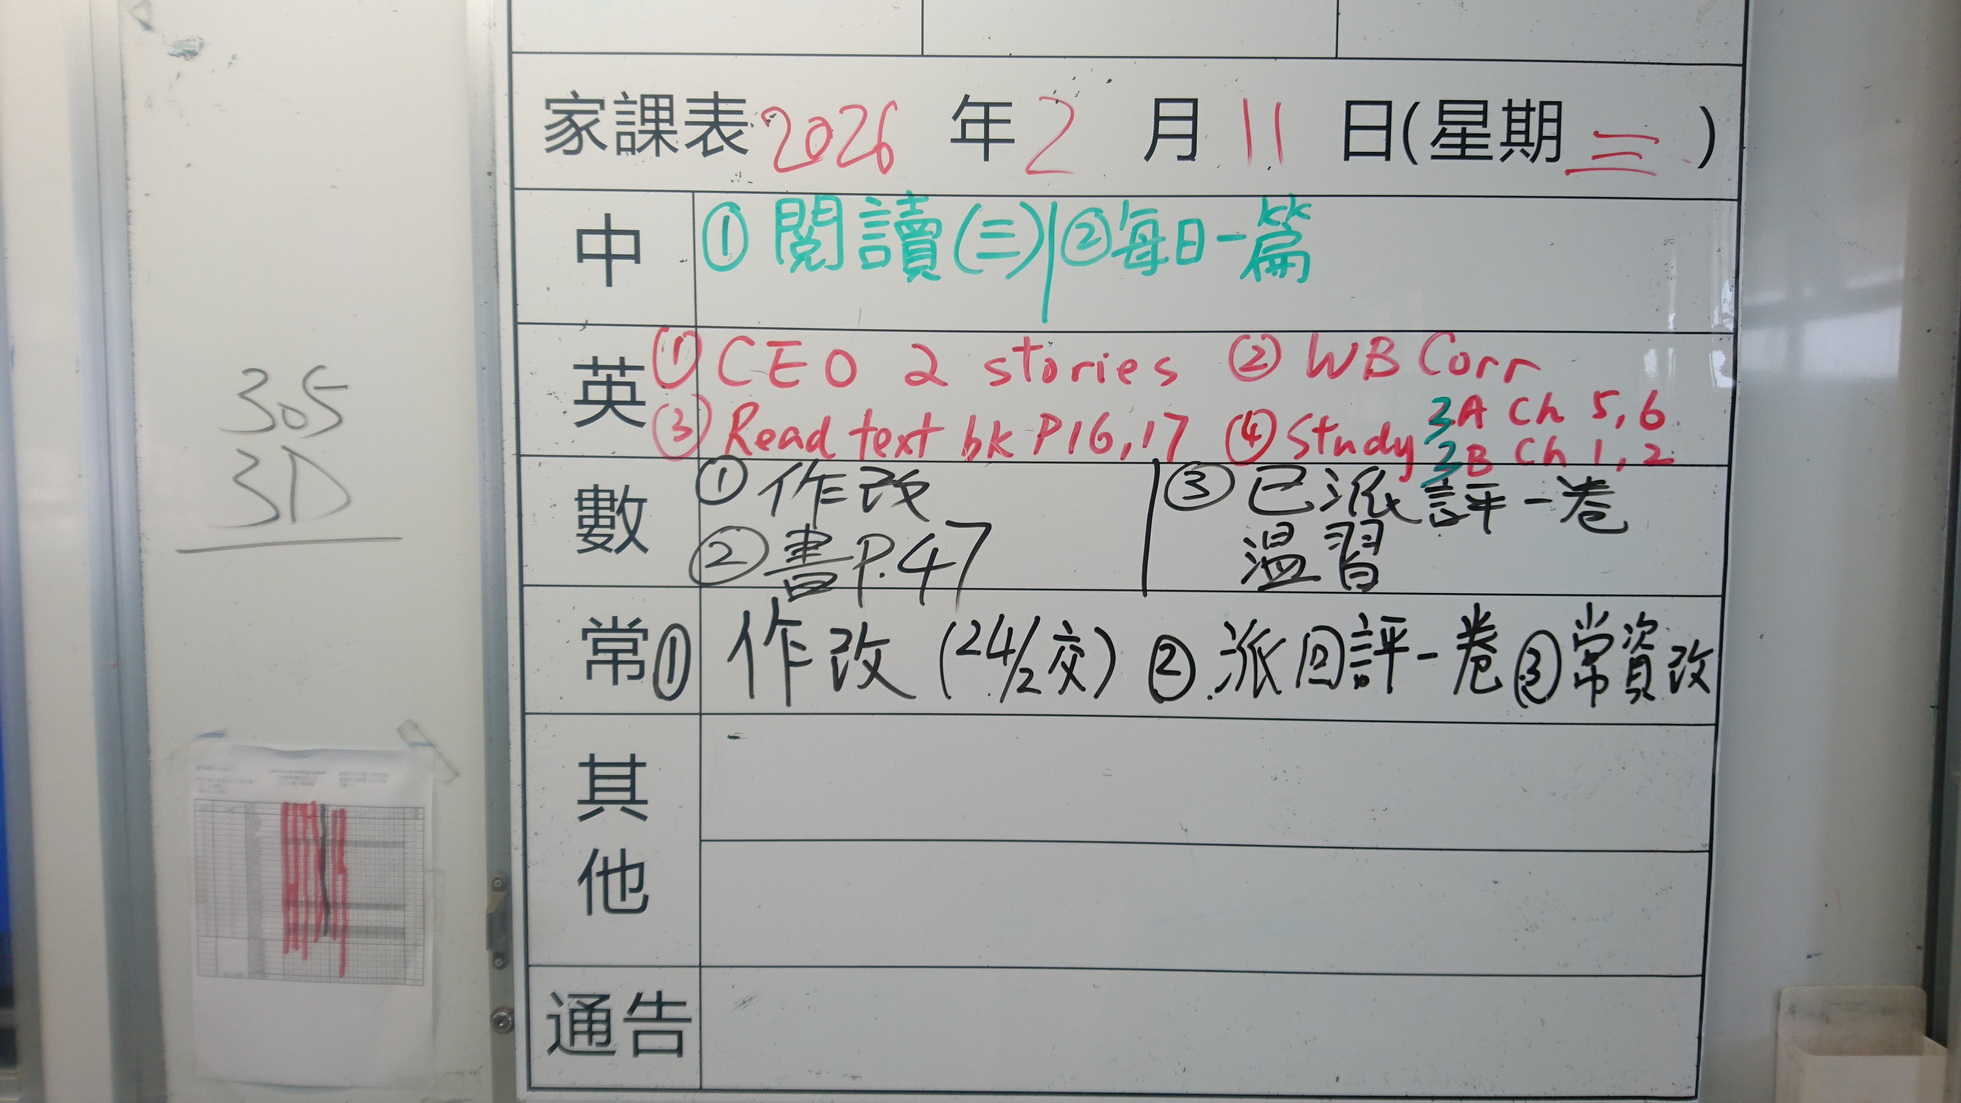 家課表 2026 年 2 月 11 日(星期三)
305
3D
中 ① 閱讀(三) ② 每日一篇
英 ① CEO 2 stories ② WB Corr
③ Read text bk P16,17 ④ Study 3A Ch 5,6
3B Ch 1,2
數 ① 作改 ③ 已派評一卷
② 書P.47 溫習
常 ① 作改 (24/2交) ② 派回評一卷 ③ 常資改
其他
通告